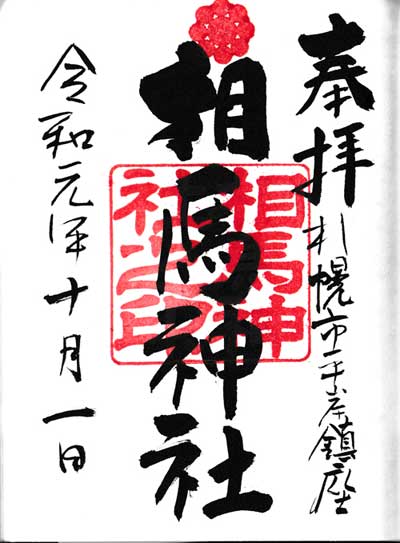 奉拝
札幌市平岸鎮座
相馬神社
相馬神
社之印
令和元年十月一日